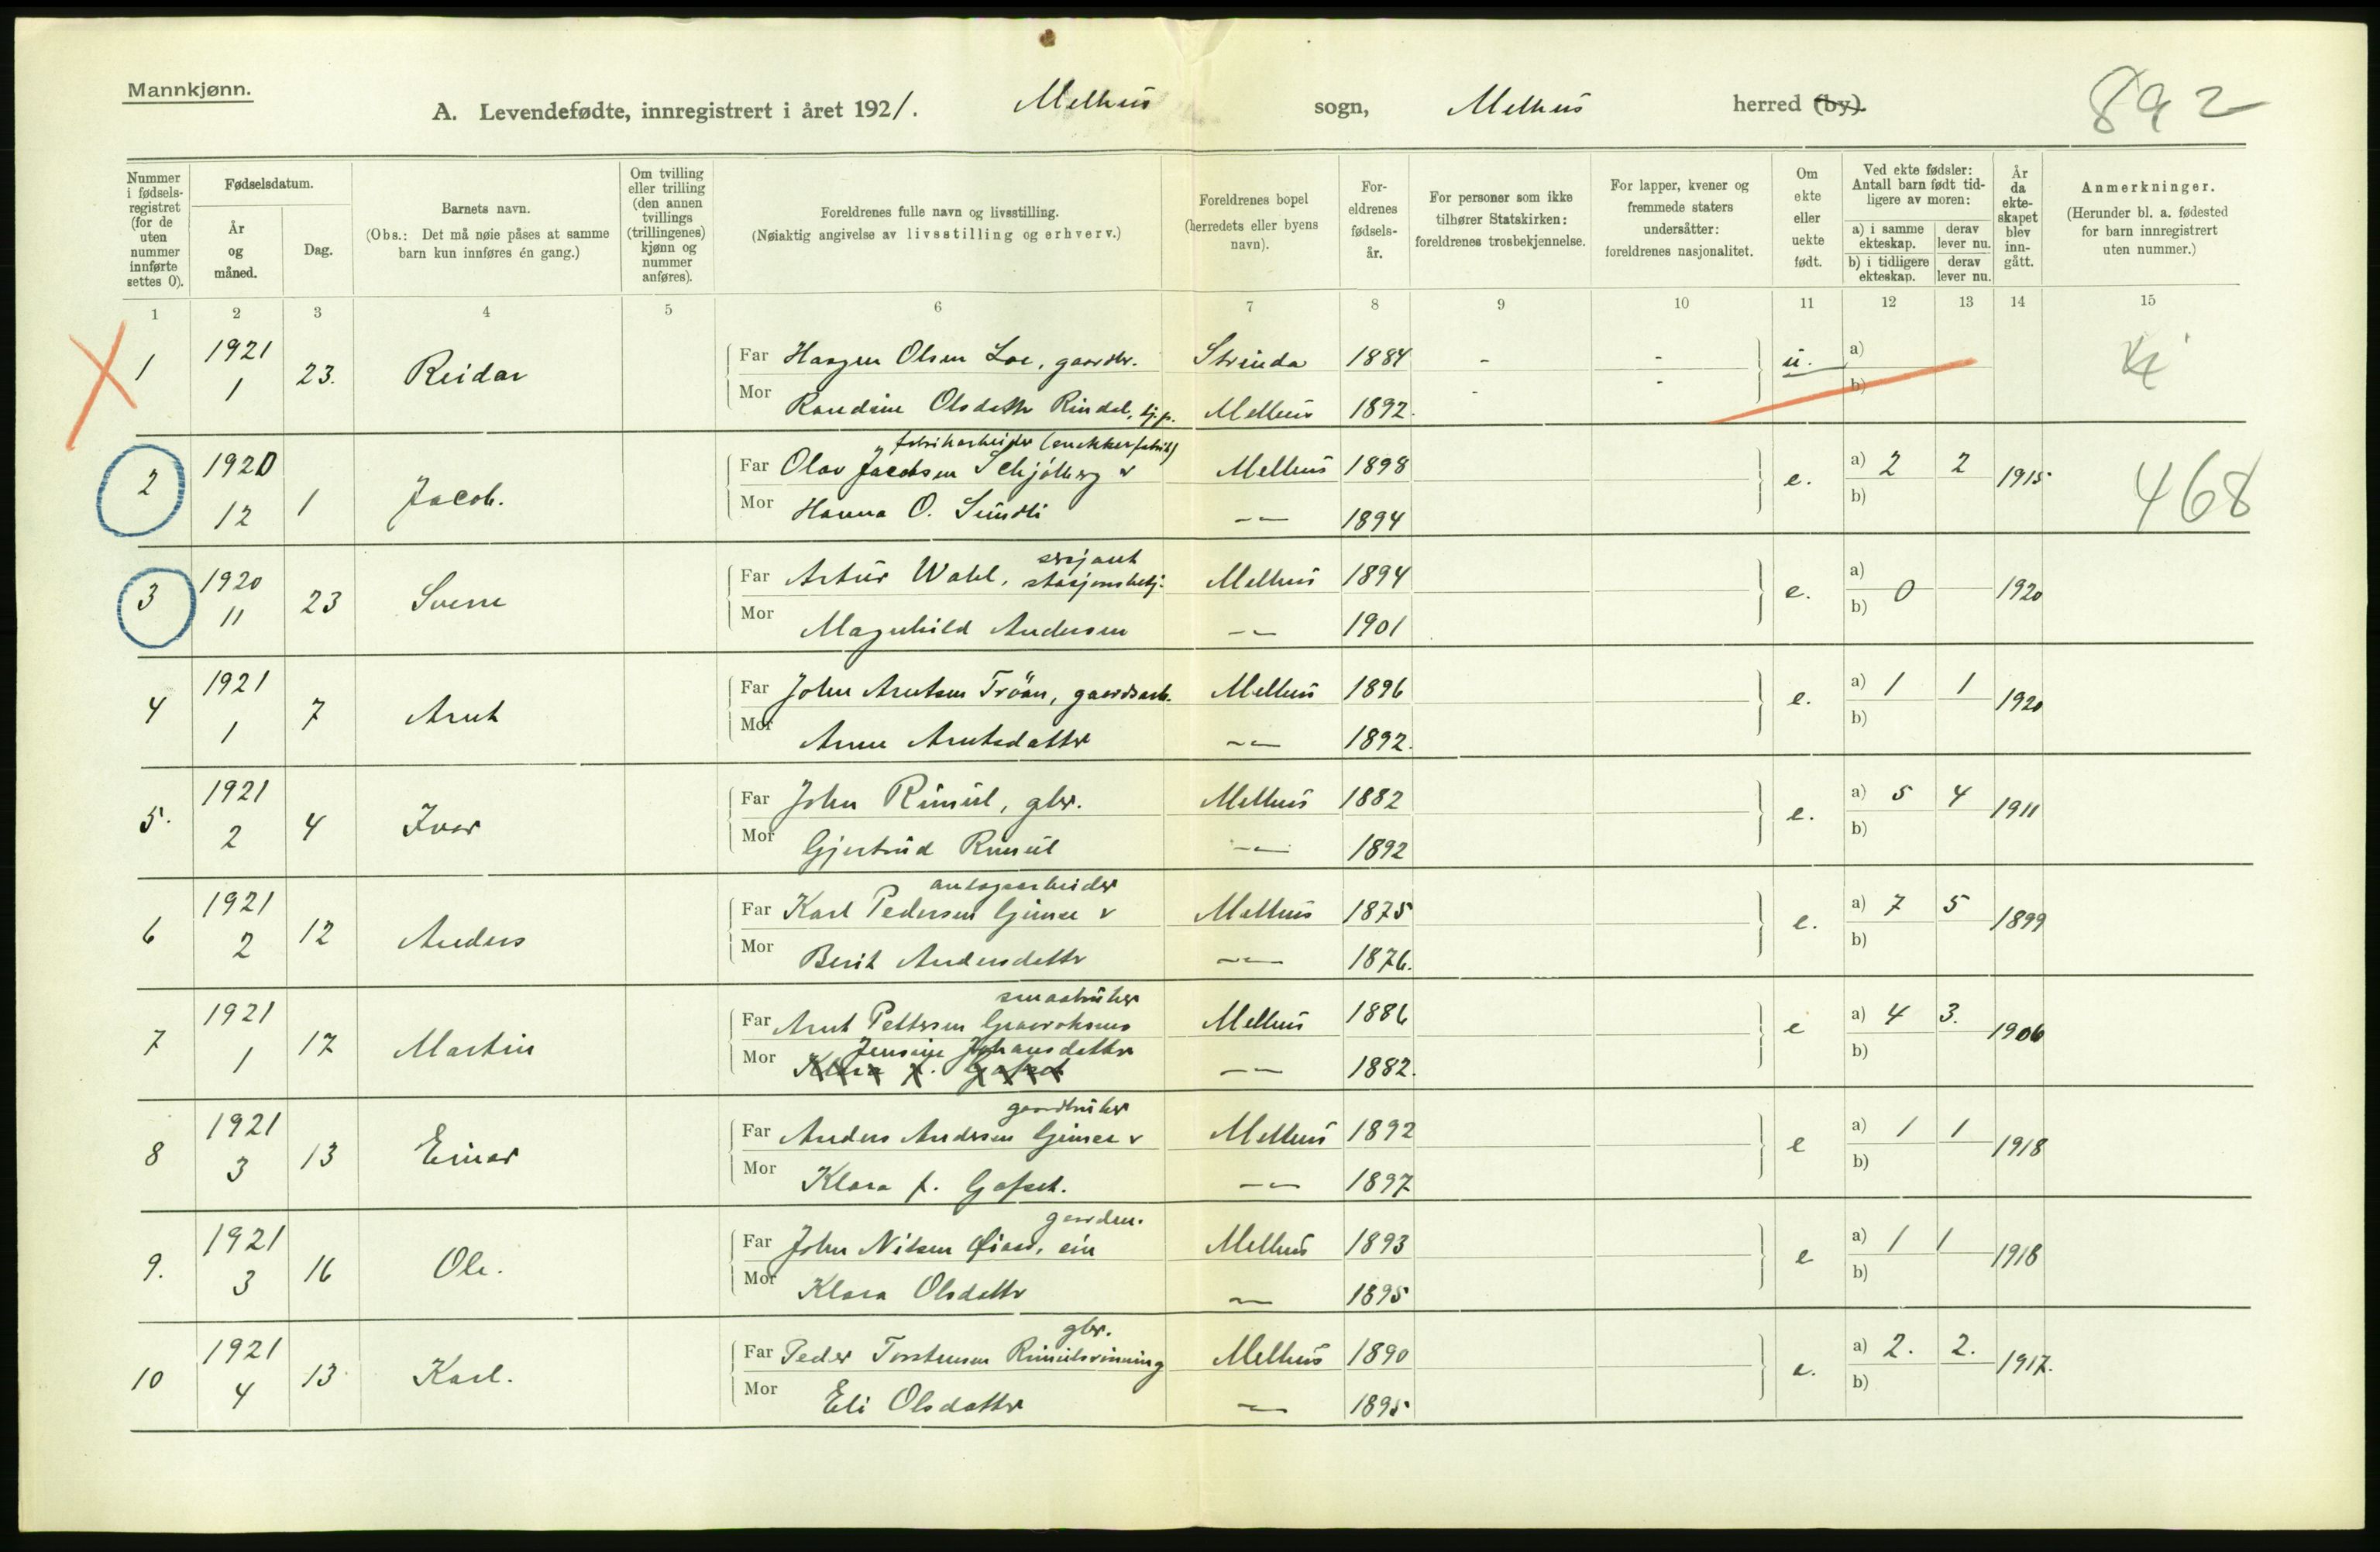 Mannkjønn.
A. Levendefødte, innregistrert i året 1921. Melhus sogn, Melhus herred (by). 892
Nummer i fødsels-registret (for de uten nummer innførte settes 0).
Fødselsdatum.
År og måned.
Dag.
Barnets navn.
(Obs.: Det må nøie påses at samme barn kun innføres én gang.)
Om tvilling eller trilling (den annen tvillings (trillingenes) kjønn og nummer anføres).
Foreldrenes fulle navn og livsstilling.
(Nøiaktig angivelse av livsstilling og erhverv.)
Foreldrenes bopel (herredets eller byens navn).
For-eldrenes fødsels-år.
For personer som ikke tilhører Statskirken: foreldrenes trosbekjennelse.
For lapper, kvener og fremmede staters undersåtter: foreldrenes nasjonalitet.
Om ekte eller uekte født.
Ved ekte fødsler: Antall barn født tid-ligere av moren:
a) i samme ekteskap.
derav lever nu.
b) i tidligere ekteskap.
derav lever nu.
År da ekte-skapet blev inn-gått.
Anmerkninger.
(Herunder bl. a. fødested for barn innregistrert uten nummer.)
1 2 3 4 5 6 7 8 9 10 11 12 13 14 15
1 1921 1 23. Reidar
Far Haagen Olsen Loe, gaardbr. Strinda 1884 - - u. a)
Mor Randine Olsdattr Rindal, tj.p. Melhus 1892. - - b)
2 1920 12 1 Jacob.
fabrikarbeider
Far Olav Jacobsen Schjølberg v Melhus 1898 e. a) 2 2 1915 468
Mor Hanna O. Sundli -"- 1894 b)
3 1920 11 23 Sverre
sersjant
Far Artur Wahl, stasjonsbetj. Melhus 1894 e. a) 0 1920
Mor Magnhild Andersen -"- 1901 b)
4 1921 1 7 Arnt
Far John Arntsen Trøån, gaardsarb. Melhus 1896 e. a) 1 1 1920
Mor Anne Arntsdatter -"- 1892. b)
5. 1921 2 4 Ivar
Far John Rimul, gbr. Melhus 1882 e. a) 5 4 1911
Mor Gjertrud Rimul -"- 1892 b)
6 1921 2 12 Anders
anlegsarbeider
Far Karl Pedersen Gimse v Melhus 1875 e. a) 7 5 1899
Mor Berit Andersdattr -"- 1876. b)
7 1921 1 17 Martin
smaabruker
Far Arnt Pettersen Melhus 1886 e a) 4 3. 1906
Jensine Johansdatter
Mor Klara f. Gafset -"- 1882. b)
8 1921 3 13 Einar
gaardbruker
Far Anders Andersen Gimse v Melhus 1892 e a) 1 1 1918
Mor Klara f. Gafset. -"- 1897 b)
9. 1921 3 16 Ole.
gaarden.
Far John Nilsen Øiaas, ein Melhus 1893 e a) 1 1 1918
Mor Klara Olsdattr -"- 1895 b)
10 1921 4 13 Karl.
gbr.
Far Peder Torstensen Rimulsvinning Melhus 1890 e. a) 2. 2. 1917.
Mor Eli Olsdatter -"- 1895 b)